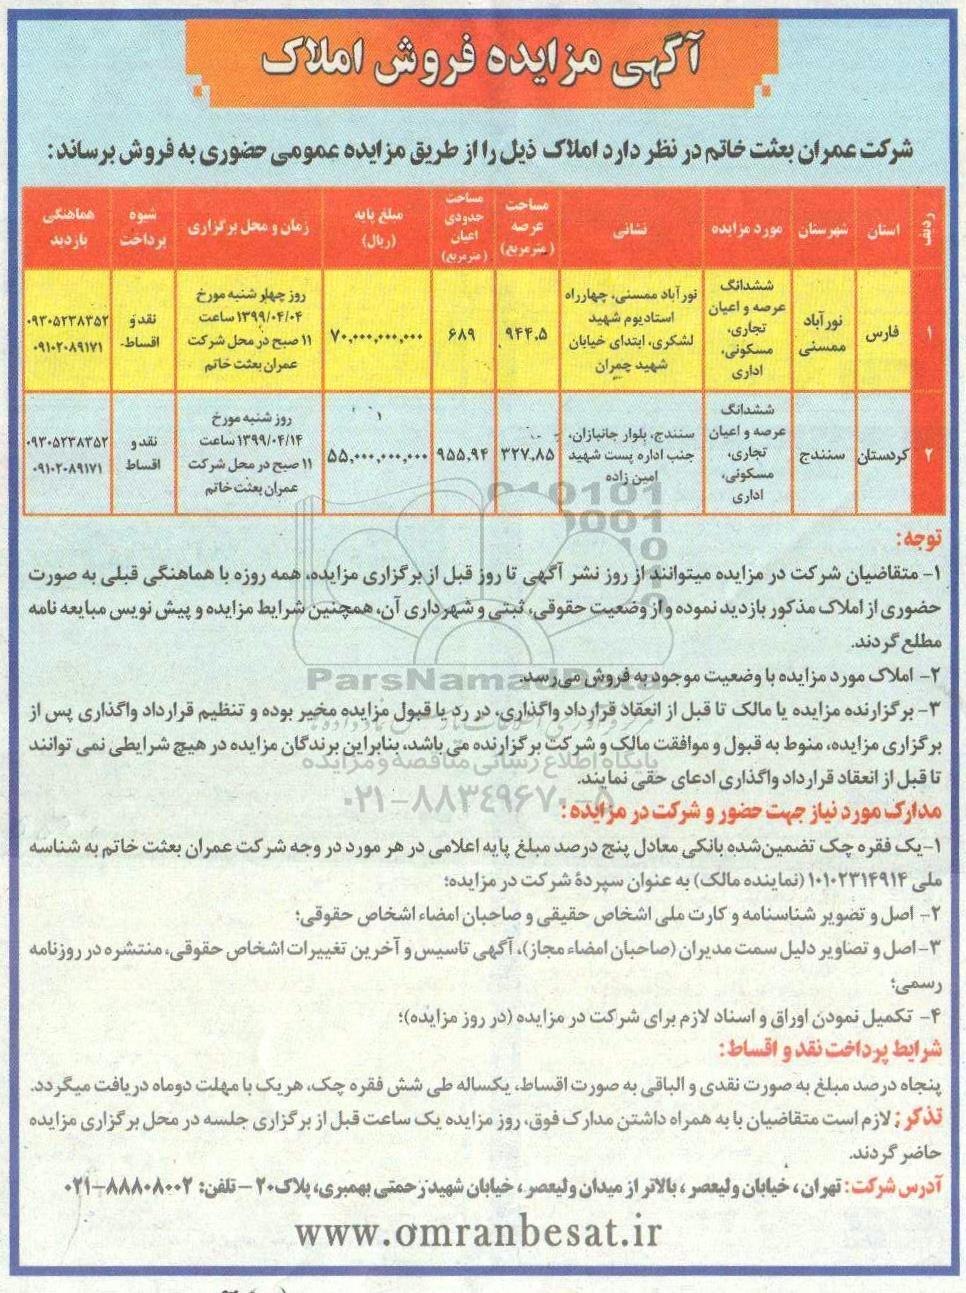 آگهی مزایده فروش املاک
شرکت عمران بعثت خاتم در نظر دارد املاک ذیل را از طریق مزایده عمومی حضوری به فروش برساند:
ردیف
استان
شهرستان
مورد مزایده
نشانی
مساحت
عرصه
(مترمربع)
مساحت
حدودی
اعیان
(مترمربع)
مبلغ پایه
(ریال)
زمان و محل برگزاری
شیوه
پرداخت
هماهنگی
بازدید
۱
فارس
نورآباد
ممسنی
ششدانگ
عرصه و اعیان
تجاری،
مسکونی،
اداری
نورآباد ممسنی، چهارراه
استادیوم شهید
لشگری، ابتدای خیابان
شهید چمران
۹۴۴.۵
۶۸۹
۷۰,۰۰۰,۰۰۰,۰۰۰
روز چهارشنبه مورخ
۱۳۹۹/۰۴/۰۴ ساعت
۱۱ صبح در محل شرکت
عمران بعثت خاتم
نقد و
اقساط-
۰۹۳۰۵۲۳۸۳۵۲
۰۹۱۰۲۰۸۹۱۷۱
۲
کردستان
سنندج
ششدانگ
عرصه و اعیان
تجاری،
مسکونی،
اداری
سنندج، بلوار جانبازان،
جنب اداره پست شهید
امین زاده
۳۲۷.۸۵
۹۵۵.۹۴
۵۵,۰۰۰,۰۰۰,۰۰۰
روز شنبه مورخ
۱۳۹۹/۰۴/۱۴ ساعت
۱۱ صبح در محل شرکت
عمران بعثت خاتم
نقد و
اقساط
۰۹۳۰۵۲۳۸۳۵۲
۰۹۱۰۲۰۸۹۱۷۱
توجه:
۱- متقاضیان شرکت در مزایده میتوانند از روز نشر آگهی تا روز قبل از برگزاری مزایده، همه روزه با هماهنگی قبلی به صورت
حضوری از املاک مذکور بازدید نموده و از وضعیت حقوقی، ثبتی و شهرداری آن، همچنین شرایط مزایده و پیش نویس مبایعه نامه
مطلع گردند.
۲- املاک مورد مزایده با وضعیت موجود به فروش می‌رسد.
ParsNamadData
۳- برگزارنده مزایده یا مالک تا قبل از انعقاد قرارداد واگذاری، در رد یا قبول مزایده مخیر بوده و تنظیم قرارداد واگذاری پس از
برگزاری مزایده، منوط به قبول و موافقت مالک و شرکت برگزارنده می باشد، بنابراین برندگان مزایده در هیچ شرایطی نمی توانند
پایگاه اطلاع رسانی مناقصه و مزایده
تا قبل از انعقاد قرارداد واگذاری ادعای حقی نمایند.
۰۲۱-۸۸۳۴۹۶۷۰-۵
مدارک مورد نیاز جهت حضور و شرکت در مزایده:
۱-یک فقره چک تضمین‌شده بانکی معادل پنج درصد مبلغ پایه اعلامی در هر مورد در وجه شرکت عمران بعثت خاتم به شناسه
ملی ۱۰۱۰۲۳۱۴۹۱۴ (نماینده مالک) به عنوان سپردهٔ شرکت در مزایده؛
۲- اصل و تصویر شناسنامه و کارت ملی اشخاص حقیقی و صاحبان امضاء اشخاص حقوقی؛
۳-اصل و تصاویر دلیل سمت مدیران (صاحبان امضاء مجاز)، آگهی تاسیس و آخرین تغییرات اشخاص حقوقی، منتشره در روزنامه
رسمی؛
۴- تکمیل نمودن اوراق و اسناد لازم برای شرکت در مزایده (در روز مزایده)؛
شرایط پرداخت نقد و اقساط:
پنجاه درصد مبلغ به صورت نقدی و الباقی به صورت اقساط، یکساله طی شش فقره چک، هریک با مهلت دوماه دریافت میگردد.
تذکر: لازم است متقاضیان با به همراه داشتن مدارک فوق، روز مزایده یک ساعت قبل از برگزاری جلسه در محل برگزاری مزایده
حاضر گردند.
آدرس شرکت: تهران، خیابان ولیعصر، بالاتر از میدان ولیعصر، خیابان شهید رحمتی بهمبری، پلاک ۲۰ - تلفن: ۸۸۸۰۸۰۰۲-۰۲۱
www.omranbesat.ir